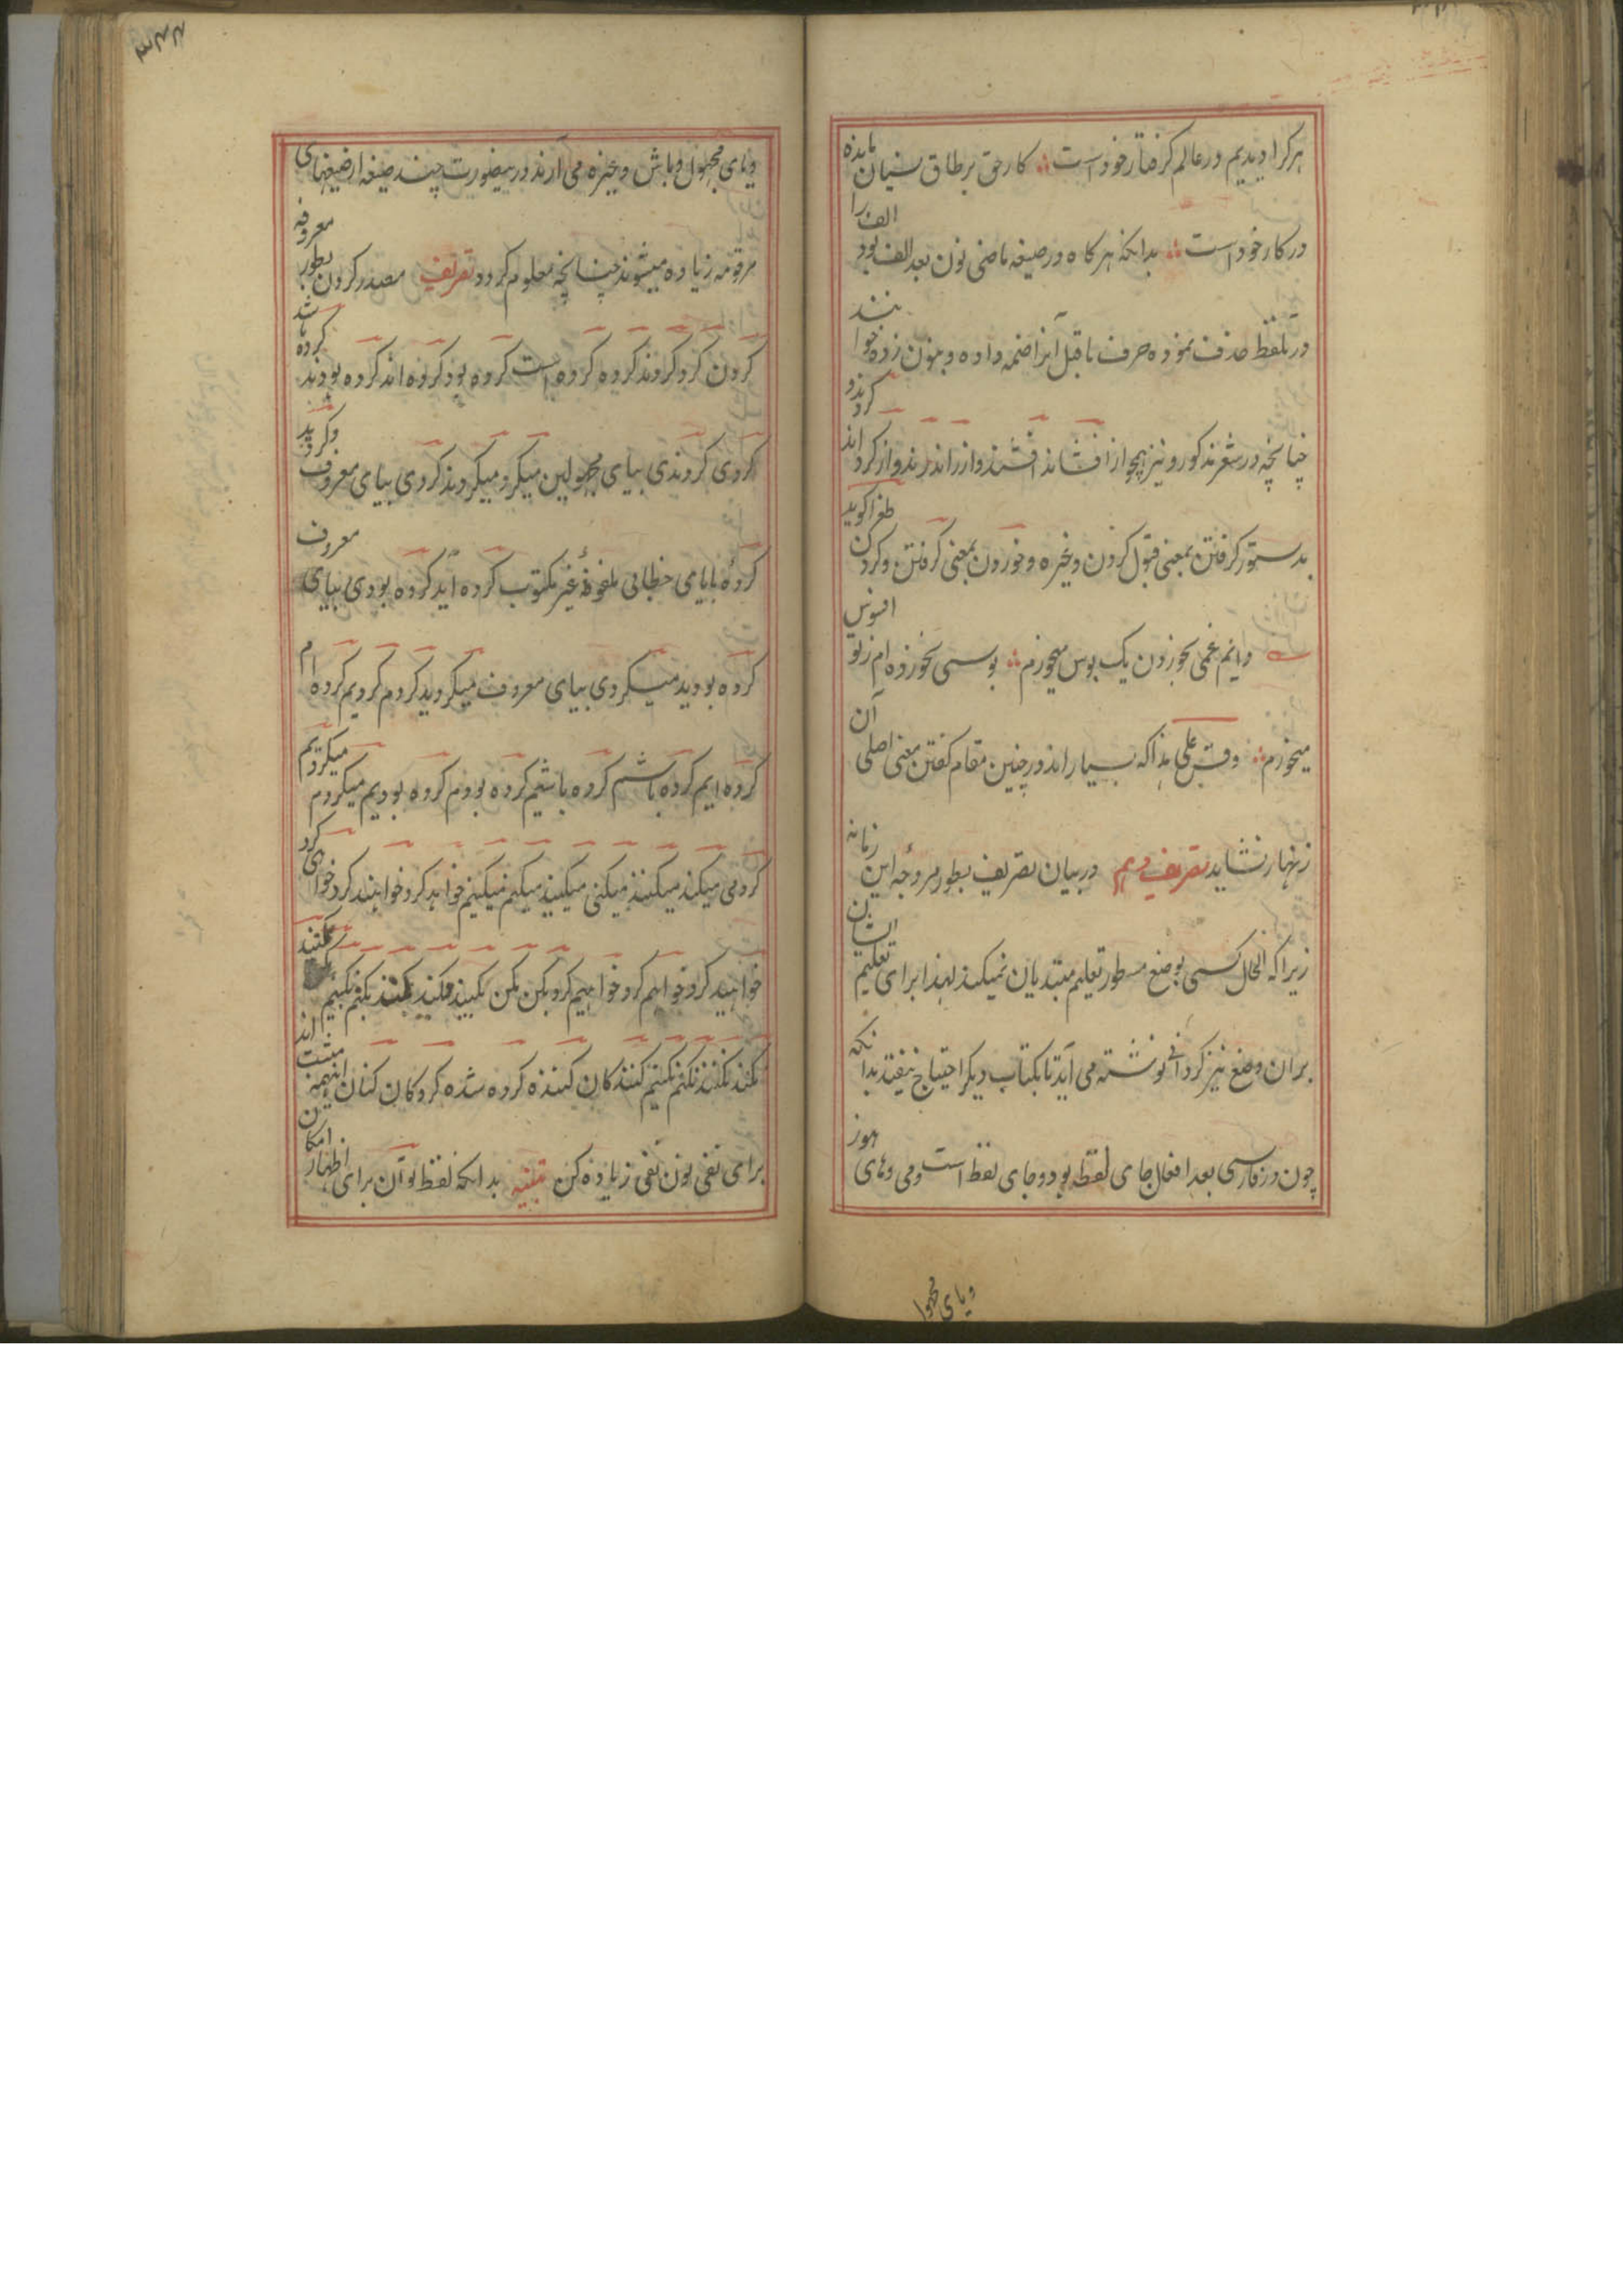 هرکرا دیدیم در عالم گرفتار خود است ؞ کار حق بر طاق نسیان مانده
در کار خود است ؞ بدانکه هرگاه در صیغه ماضی نون بعد الف بود الف را
در تلفظ حذف نموده حرف ماقبل آنرا ضمه داده و بنون زده خوانند
چنانچه در شعر مذکور و نیز همچو از افشاند افشند و از راند رند و از کرداند کردند و
بدستور گرفتن بمعنی قبول کردن و غیره و خوردن بمعنی گرفتن و کردن طغرا گوید
دانم غمی بخوردن یک بوس میخورم ؞ بوسی نخورده ام ز تو افسوس
میخورم ؞ وقس علی هذا که بسیار اند در چنین مقام گفتن معنی اصلی آن
زنهار نشاید تصریف دهم در بیان تصریف بطور مروجه این زمانه
زیراکه الحال کسی بوضع مسطور تعلیم مبتدیان نمیکند لهذا برای تعلیم ایشان
بران وضع نیز گردانی نوشته می آید تا بکتاب دیگر احتیاج نیفتد بدانکه
چون در فارسی بعد افعال جای لفظ بود و جای لفظ است و می و های هوز
و یای مجهو
و یای مجهول و باش و غیره می آرند درینصورت چند صیغه از صیغهای
مرقومه زیاده میشوند چنانچه معلوم گردد تصریف مصدر کردن بطور معروفه
کردن کرد کردند کرده کرده است کرده بود کرده اند کرده بودند کرده باشد
کردی کردندی بیای مجهولین میکرد میکردند کردی بیای معروف و کردید
کردهٔ بایای خطابی ملفوظ غیر مکتوب کرده اید کرده بودی بیای معروف
کرده بودید میکردی بیای معروف میکردید کردم کردیم کرده ام
کرده ایم کرده باشم کرده باشیم کرده بودم کرده بودیم میکردم میکردیم
کردمی میکند میکنند میکنی میکنید میکنم میکنیم خواهد کرد خواهند کرد خواهی کرد
خواهید کرد خواهم کرد خواهیم کرد بکن مکن بکنید مکنید بکند بکنم بکنیم بکنند
نکند نکنند نکنم نکنیم کنندگان کننده کرده شده کردگان کنان اینهمه مثبت اند
برای نفی نون نفی زیاده کن تنبیه بدانکه لفظ توان برای اظهار امکان